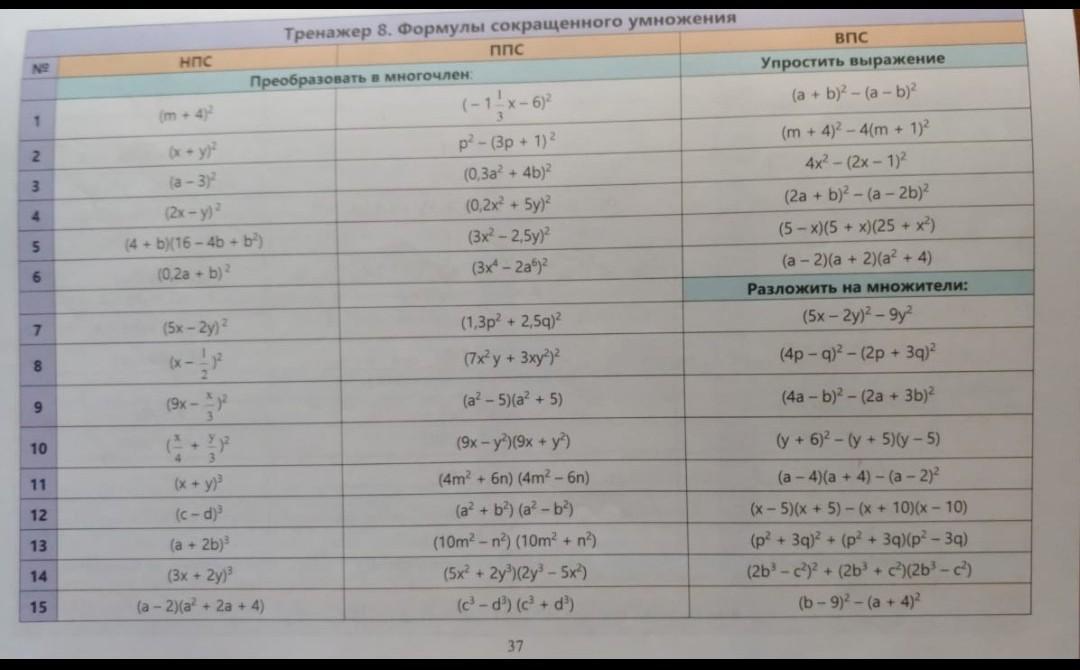 Тренажер 8. Формулы сокращенного умножения
№ НПС ППС ВПС
Преобразовать в многочлен: Упростить выражение
1 (m + 4)² (– 1 1/3 x – 6)² (a + b)² – (a – b)²
2 (x + y)² p² – (3p + 1)² (m + 4)² – 4(m + 1)²
3 (a – 3)² (0,3a² + 4b)² 4x² – (2x – 1)²
4 (2x – y)² (0,2x² + 5y)² (2a + b)² – (a – 2b)²
5 (4 + b)(16 – 4b + b²) (3x² – 2,5y)² (5 – x)(5 + x)(25 + x²)
6 (0,2a + b)² (3x⁴ – 2a⁶)² (a – 2)(a + 2)(a² + 4)
Разложить на множители:
7 (5x – 2y)² (1,3p² + 2,5q)² (5x – 2y)² – 9y²
8 (x – 1/2)² (7x²y + 3xy²)² (4p – q)² – (2p + 3q)²
9 (9x – x/3)² (a² – 5)(a² + 5) (4a – b)² – (2a + 3b)²
10 (x/4 + y/3)² (9x – y²)(9x + y²) (y + 6)² – (y + 5)(y – 5)
11 (x + y)³ (4m² + 6n) (4m² – 6n) (a – 4)(a + 4) – (a – 2)²
12 (c – d)³ (a² + b²) (a² – b²) (x – 5)(x + 5) – (x + 10)(x – 10)
13 (a + 2b)³ (10m² – n²) (10m² + n²) (p² + 3q)² + (p² + 3q)(p² – 3q)
14 (3x + 2y)³ (5x² + 2y³)(2y³ – 5x²) (2b³ – c²)² + (2b³ + c²)(2b³ – c²)
15 (a – 2)(a² + 2a + 4) (c³ – d³) (c³ + d³) (b – 9)² – (a + 4)²
37